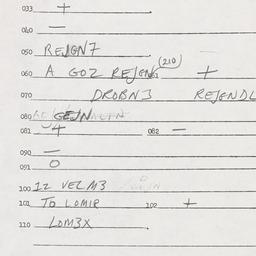 033 +
040 —
050 REJGN7
(210)
060 A GOZ REJGN +
070 DROBN3 REJENDL
080 GEJN
081 4 082 —
090 —
091 0
100 12 VELM3
101 TO LOMIR 102 +
110 LOM3X